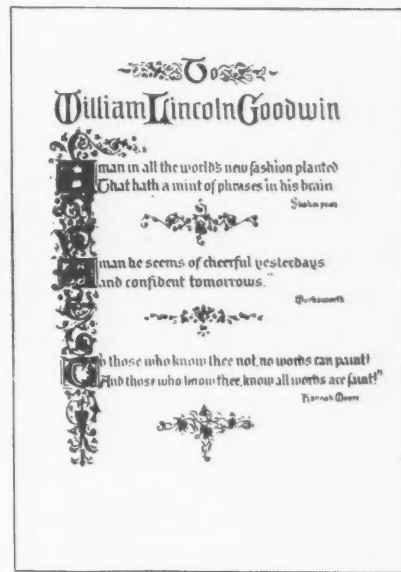 To
William Lincoln Goodwin
A man in all the world's new fashion planted
That hath a mint of phrases in his brain
Shakespeare
A man he seems of cheerful yesterdays
and confident tomorrows."
Wordsworth
To those who know thee not, no words can paint!
And those who know thee, know all words are faint!"
Hannah Moore